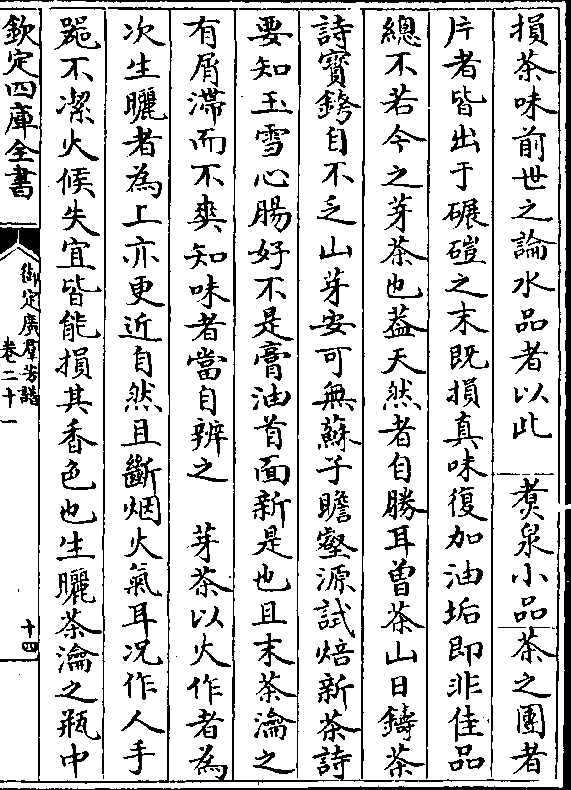 損茶味前世之論水品者以此　煑泉小品茶之團者
片者皆出于碾磑之末既損真味復加油垢即非佳品
總不若今之芽茶也葢天然者自勝耳曾茶山日鑄茶
詩寳銙自不乏山芽安可無蘇子瞻壑源試焙新茶詩
要知玉雪心腸好不是膏油首面新是也且末茶瀹之
有屑滯而不爽知味者當自辨之　芽茶以火作者為
次生曬者為上亦更近自然且斷烟火氣耳况作人手
噐不潔火候失宜皆能損其香色也生曬茶瀹之瓶中
欽定四庫全書
御定廣羣芳譜
卷二十一
十四